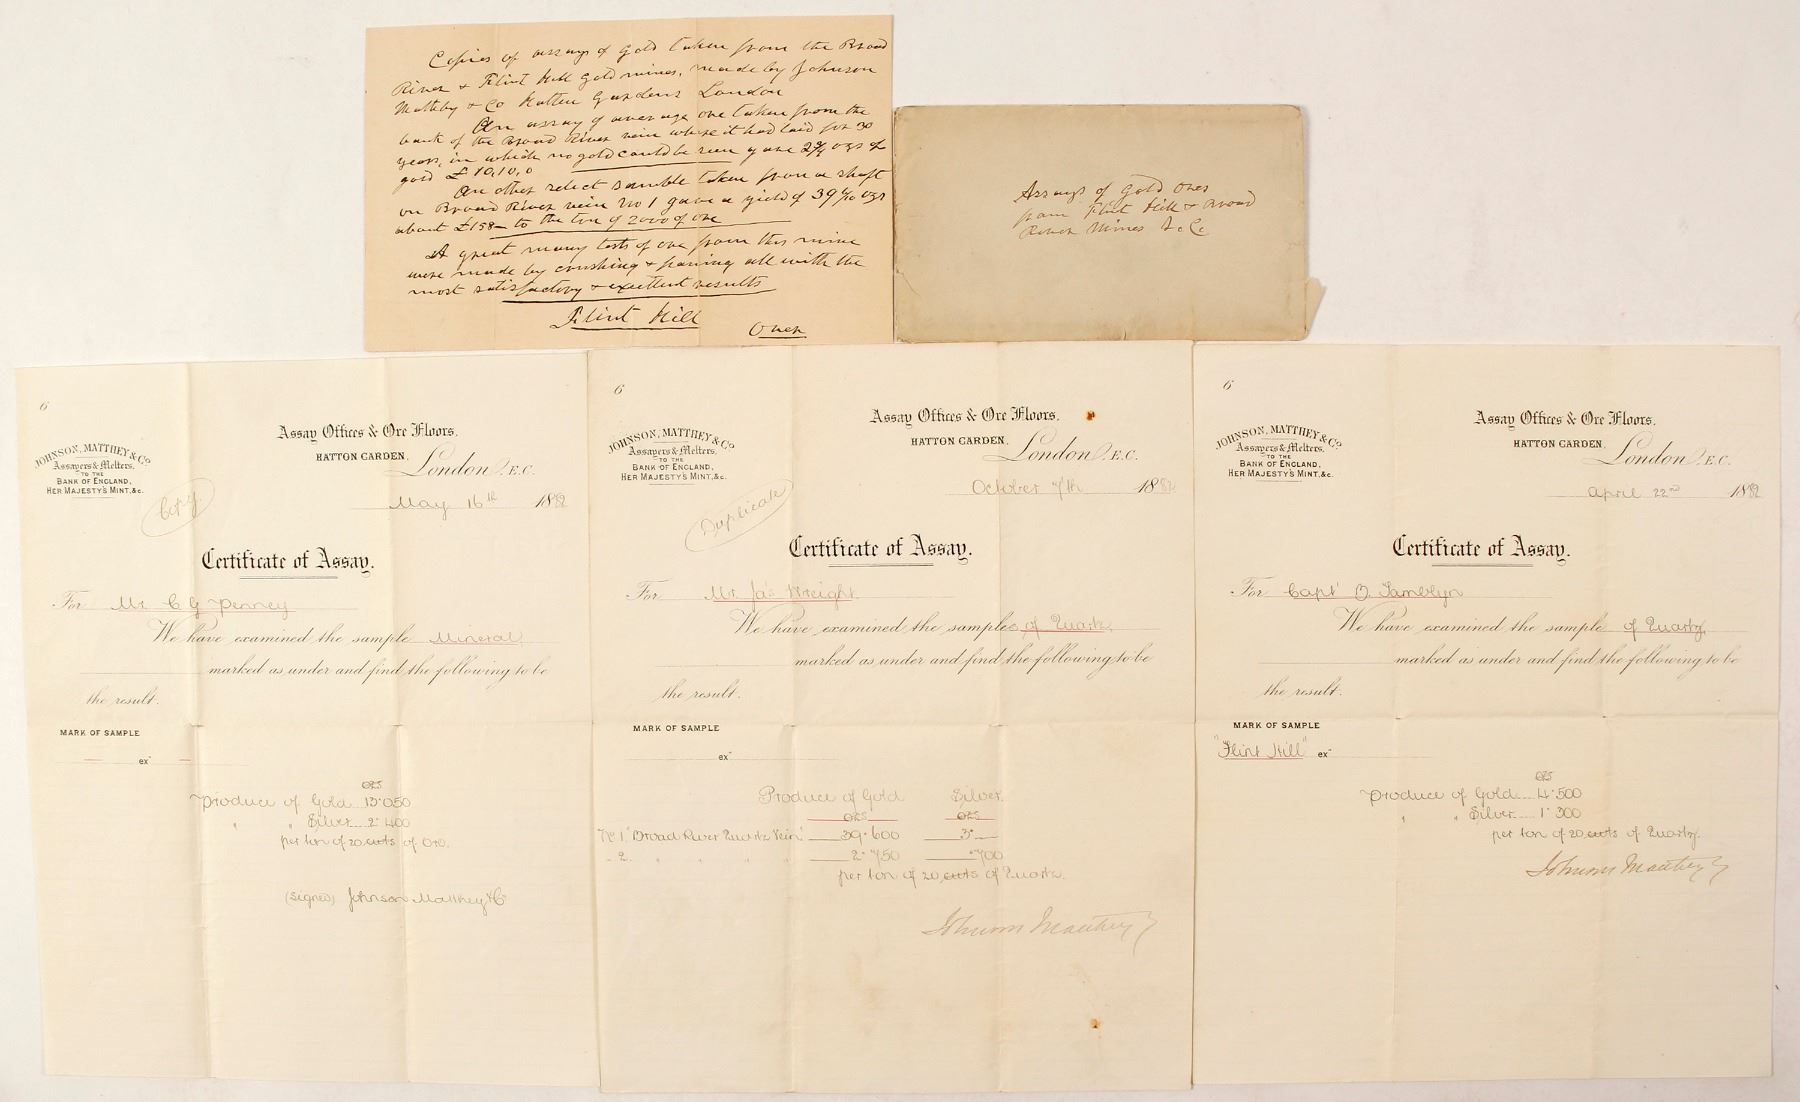 Copies of assays of Gold taken from the Broad
River & Flint Hill Gold mines, made by Johnson
Matthey & Co Hatten Gardens London
An assay of average ore taken from the
bank of the Broad River vein where it had laid for 30
years, in which no gold could be seen gave 2 3/4 ozs of
gold £10,10,0
An other select sample taken from a shaft
on Broad River vein No 1 gave a yield of 39 6/10 ozs
about £158– to the ton of 2000 of ore
A great many tests of ore from this mine
were made by crushing & paning all with the
most satisfactory & excellent results
Flint Hill
Over
Assays of Gold Ores
from Flint Hill & Broad
River Mines S. C.
6
JOHNSON, MATTHEY & Co.
Assayers & Melters,
TO THE
BANK OF ENGLAND,
HER MAJESTY'S MINT, &c.
Assay Offices & Ore Floors.
HATTON GARDEN,
London, E.C.
May 16th 1882
Copy.
Certificate of Assay.
For Mr. C G Penney
We have examined the sample Mineral
marked as under and find the following to be
the result.
MARK OF SAMPLE
— ex —
ozs
Produce of Gold....13.050
" " Silver....2.400
per ton of 20 cwts of Ore.
(signed) Johnson Matthey & Co
6
JOHNSON, MATTHEY & Co.
Assayers & Melters,
TO THE
BANK OF ENGLAND,
HER MAJESTY'S MINT, &c.
Assay Offices & Ore Floors.
HATTON GARDEN,
London, E.C.
October 7th 188
Duplicate
Certificate of Assay.
For Mr. Jas Wreight
We have examined the samples of Quartz
marked as under and find the following to be
the result.
MARK OF SAMPLE
ex
Produce of Gold Silver.
ozs ozs
No 1 "Broad River Quartz Vein" 39.600 3.—
" 2. " " " " 2.750 .700
per ton of 20 cwts of Quartz.
Johnson Matthey
6
JOHNSON, MATTHEY & Co.
Assayers & Melters,
TO THE
BANK OF ENGLAND,
HER MAJESTY'S MINT, &c.
Assay Offices & Ore Floors.
HATTON GARDEN,
London, E.C.
April 22nd 1882
Certificate of Assay.
For Capt O. Tamblyn
We have examined the sample of Quartz,
marked as under and find the following to be
the result.
MARK OF SAMPLE
"Flint Hill" ex
ozs
Produce of Gold.... 4.500
" " Silver.... 1.300
per ton of 20 cwts of Quartz.
Johnson Matthey